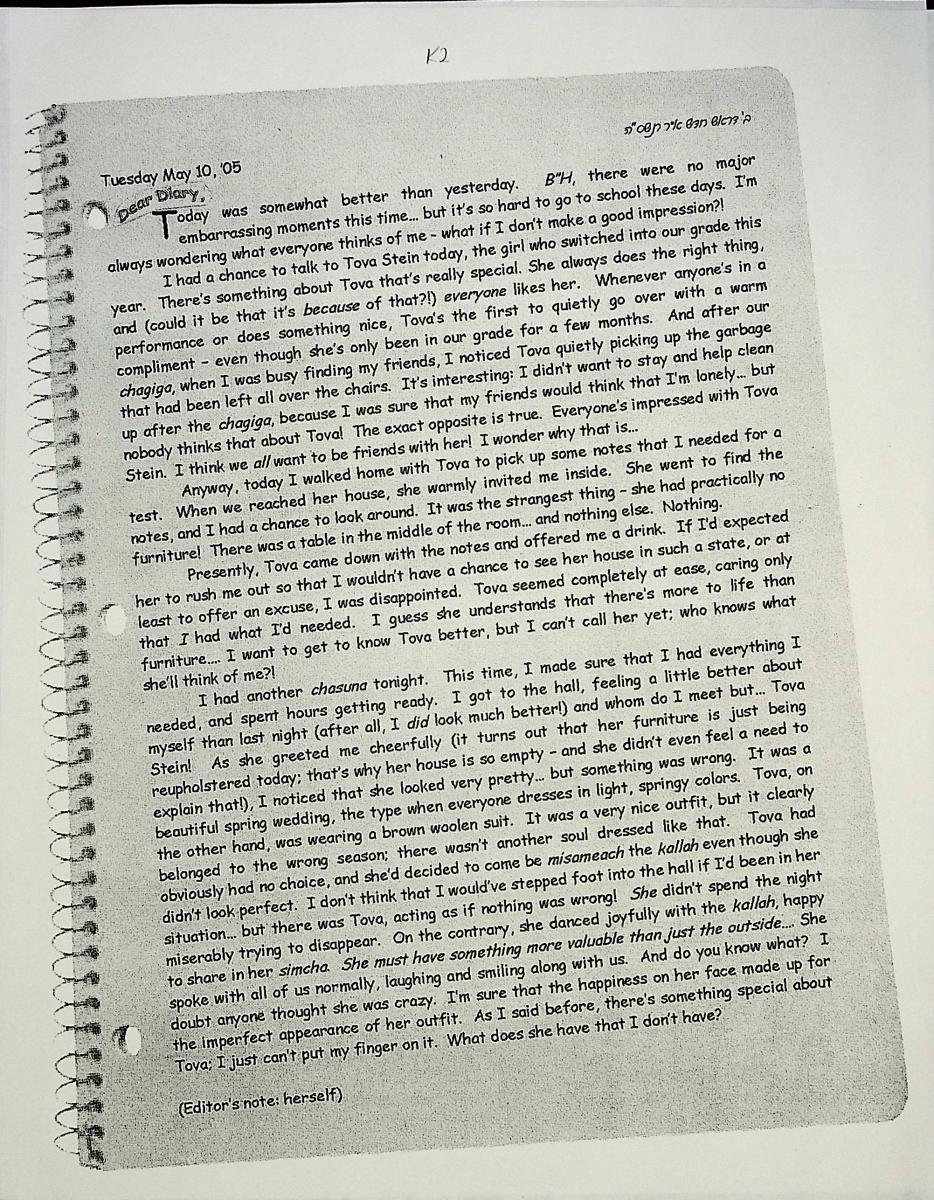 K2
ב' דראש חדש אייר תשס"ה
Tuesday May 10, '05
Dear Diary,
Today was somewhat better than yesterday. B"H, there were no major
embarrassing moments this time... but it's so hard to go to school these days. I'm
always wondering what everyone thinks of me - what if I don't make a good impression?!
I had a chance to talk to Tova Stein today, the girl who switched into our grade this
year. There's something about Tova that's really special. She always does the right thing,
and (could it be that it's because of that?!) everyone likes her. Whenever anyone's in a
performance or does something nice, Tova's the first to quietly go over with a warm
compliment - even though she's only been in our grade for a few months. And after our
chagiga, when I was busy finding my friends, I noticed Tova quietly picking up the garbage
that had been left all over the chairs. It's interesting: I didn't want to stay and help clean
up after the chagiga, because I was sure that my friends would think that I'm lonely... but
nobody thinks that about Tova! The exact opposite is true. Everyone's impressed with Tova
Stein. I think we all want to be friends with her! I wonder why that is...
Anyway, today I walked home with Tova to pick up some notes that I needed for a
test. When we reached her house, she warmly invited me inside. She went to find the
notes, and I had a chance to look around. It was the strangest thing - she had practically no
furniture! There was a table in the middle of the room... and nothing else. Nothing.
Presently, Tova came down with the notes and offered me a drink. If I'd expected
her to rush me out so that I wouldn't have a chance to see her house in such a state, or at
least to offer an excuse, I was disappointed. Tova seemed completely at ease, caring only
that I had what I'd needed. I guess she understands that there's more to life than
furniture.... I want to get to know Tova better, but I can't call her yet; who knows what
she'll think of me?!
I had another chasuna tonight. This time, I made sure that I had everything I
needed, and spent hours getting ready. I got to the hall, feeling a little better about
myself than last night (after all, I did look much better!) and whom do I meet but... Tova
Stein! As she greeted me cheerfully (it turns out that her furniture is just being
reupholstered today; that's why her house is so empty - and she didn't even feel a need to
explain that!), I noticed that she looked very pretty... but something was wrong. It was a
beautiful spring wedding, the type when everyone dresses in light, springy colors. Tova, on
the other hand, was wearing a brown woolen suit. It was a very nice outfit, but it clearly
belonged to the wrong season; there wasn't another soul dressed like that. Tova had
obviously had no choice, and she'd decided to come be misameach the kallah even though she
didn't look perfect. I don't think that I would've stepped foot into the hall if I'd been in her
situation... but there was Tova, acting as if nothing was wrong! She didn't spend the night
miserably trying to disappear. On the contrary, she danced joyfully with the kallah, happy
to share in her simcha. She must have something more valuable than just the outside.... She
spoke with all of us normally, laughing and smiling along with us. And do you know what? I
doubt anyone thought she was crazy. I'm sure that the happiness on her face made up for
the imperfect appearance of her outfit. As I said before, there's something special about
Tova; I just can't put my finger on it. What does she have that I don't have?
(Editor's note: herself)